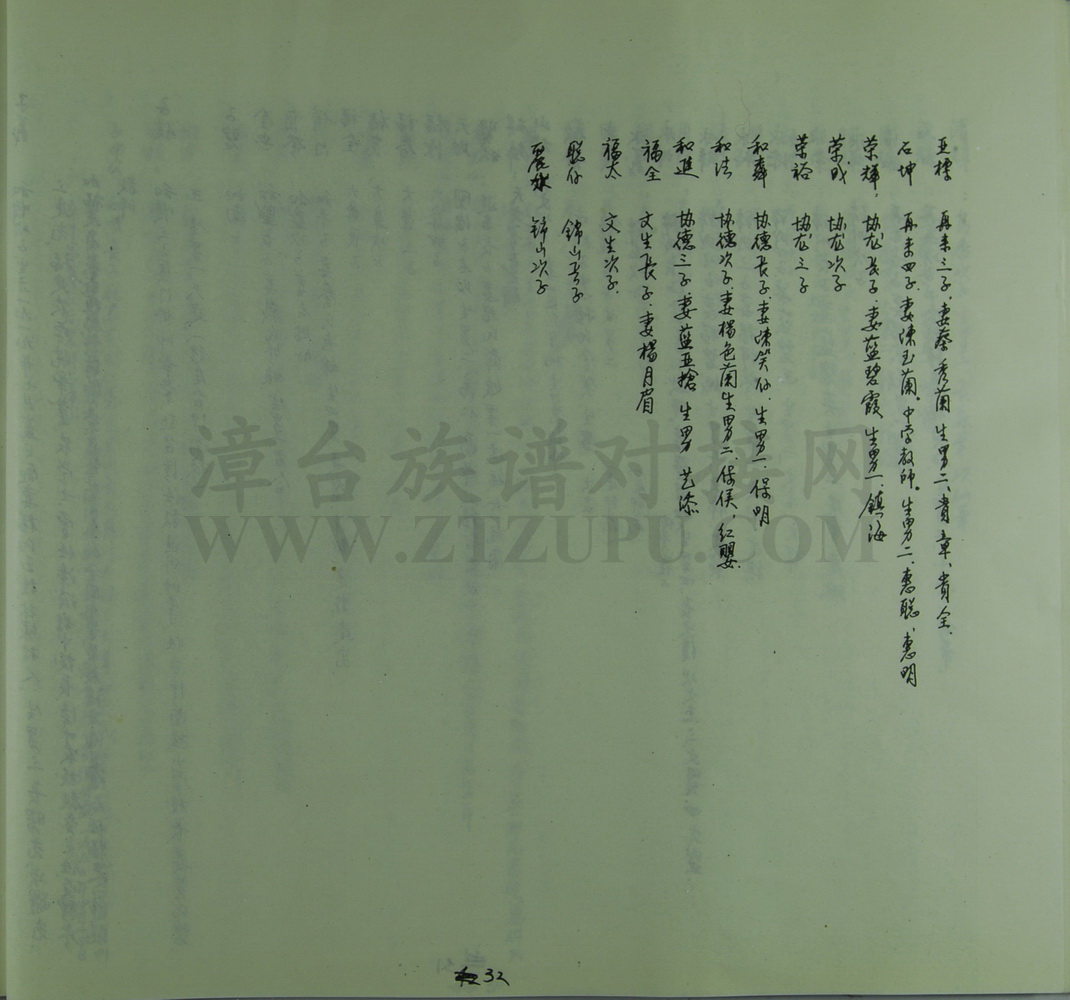 亚標 再来三子.妻蔡秀蘭生男二、貴章、貴全.
石坤 再来四子.妻陳玉蘭。中学教師。生男二.惠聪、惠明
荣輝, 协龙長子.妻蓝碧霞生男一.鎮海
荣成 协龙次子
荣裕 协龙三子
和森 协德長子.妻陳笑仔.生男一.保明
和法 协德次子.妻楊色蘭生男二.保侯,红嬰.
和進 协德三子.妻蓝亚搶生男 艺添
福全 文生長子.妻楊月眉
福太 文生次子.
聪仔 錦山長子
錦山次子
漳台族谱对接网
WWW.ZTZUPU.COM
32